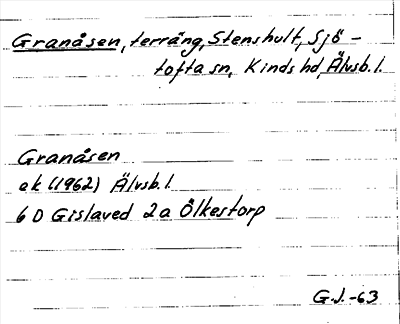 Granåsen, terräng, Stenshult, Sjö-
tofta sn, Kinds hd, Älvsb. l.
Granåsen
ek (1962) Älvsb. l.
6 D Gislaved 2a Ölkestorp
G.J. -63